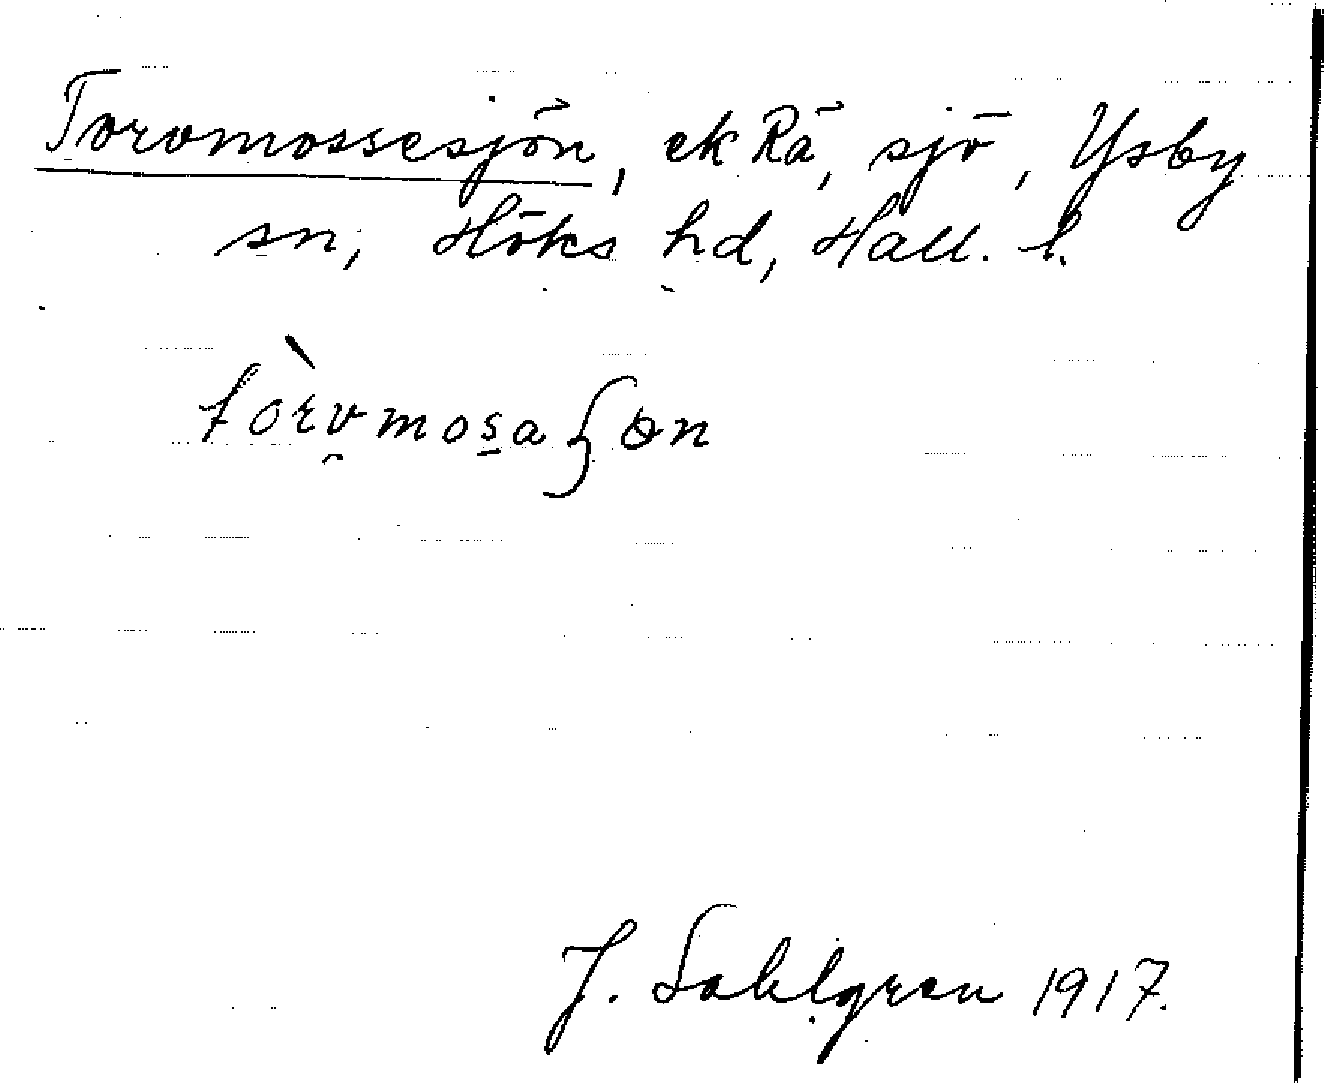 Torvmossesjön, ek Rå, sjö, Ysby
sn, Höks hd, Hall. l.
tòrvmosaʃɵn
J. Sahlgren 1917.